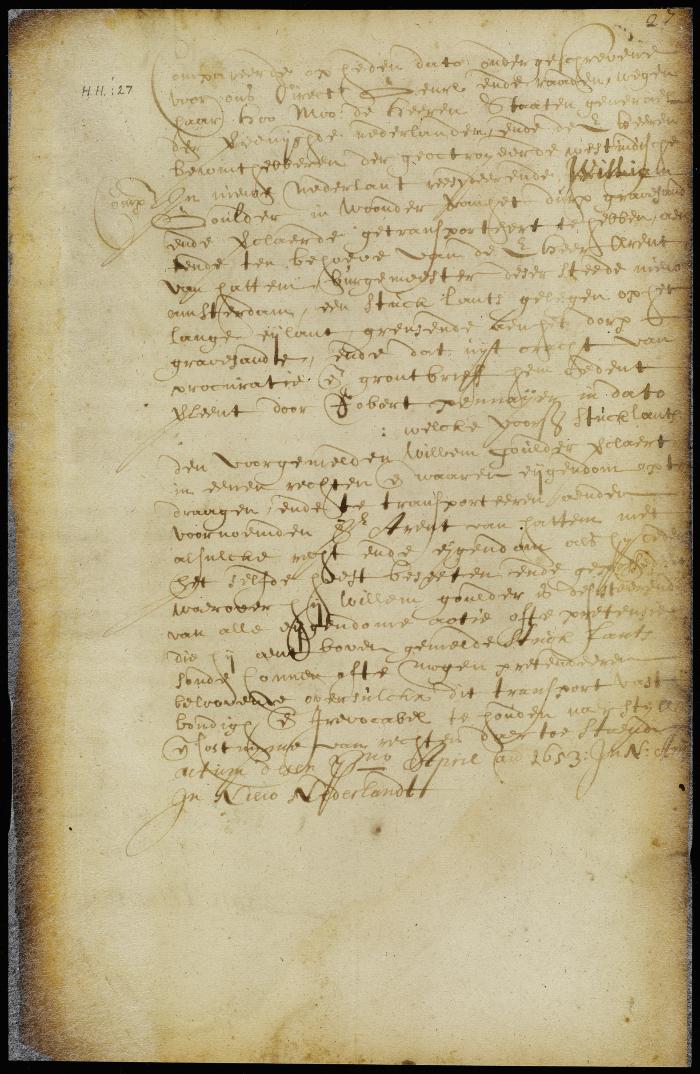 27
H.H.:27
Compareerde op heden dato ondergeschrevene
voor ons Direct Genrl ende raaden, wegen
haar Hoo Moo: de Heeren Staaten generael
der Vereenichde nederlanden, ende de E heeren
bewinthebberen der geoctroyeerde westindische
Comp in nieuw nederlant resideerende, Willem
Goulder in Woonder het dorp gravesand
ende Verclaerde getransporteert te hebben,
ende ten behoeve van de E heer Arent
van hattem, burgemeester deser steede nieuw
amsterdam, een stuck lants gelegen op het
lange eylant, grensende aen het dorp
gravesande, ende dat uyt cracht van
procuratie & grontbrieff hem
Verleent door Robert pennayer in dato
: welcke voors stuck lants
den voorgemelden Willem goulder Verclaert
in eenen rechten & waaren eygendom op te
draagen, ende te transporteeren aenden
voornoemden Arent van hattem met
alsulcke recht ende eygendom als hy
het selfde heeft beseeten ende
waerover hy Willem goulder is desisteerende
van alle eygendomme actie ofte pretensie
die hy aent boven gemelde stuck lants
soude connen ofte mogen pretendeeren
beloovende oversulckx dit transport vast
bondigh & Irevocabel te houden naer
& costuyme van rechten daer toe staende
actum desen April ao 1653: In N: Am
In Nieu Nederlandt